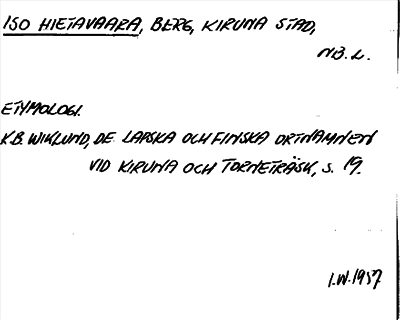 ISO HIETAVAARA, BERG, KIRUNA STAD,
NB. L.
ETYMOLOGI.
K.B. WIKLUND, DE LAPSKA OCH FINSKA ORTNAMNEN
VID KIRUNA OCH TORNETRÄSK, S. 19.
I.W. 1957